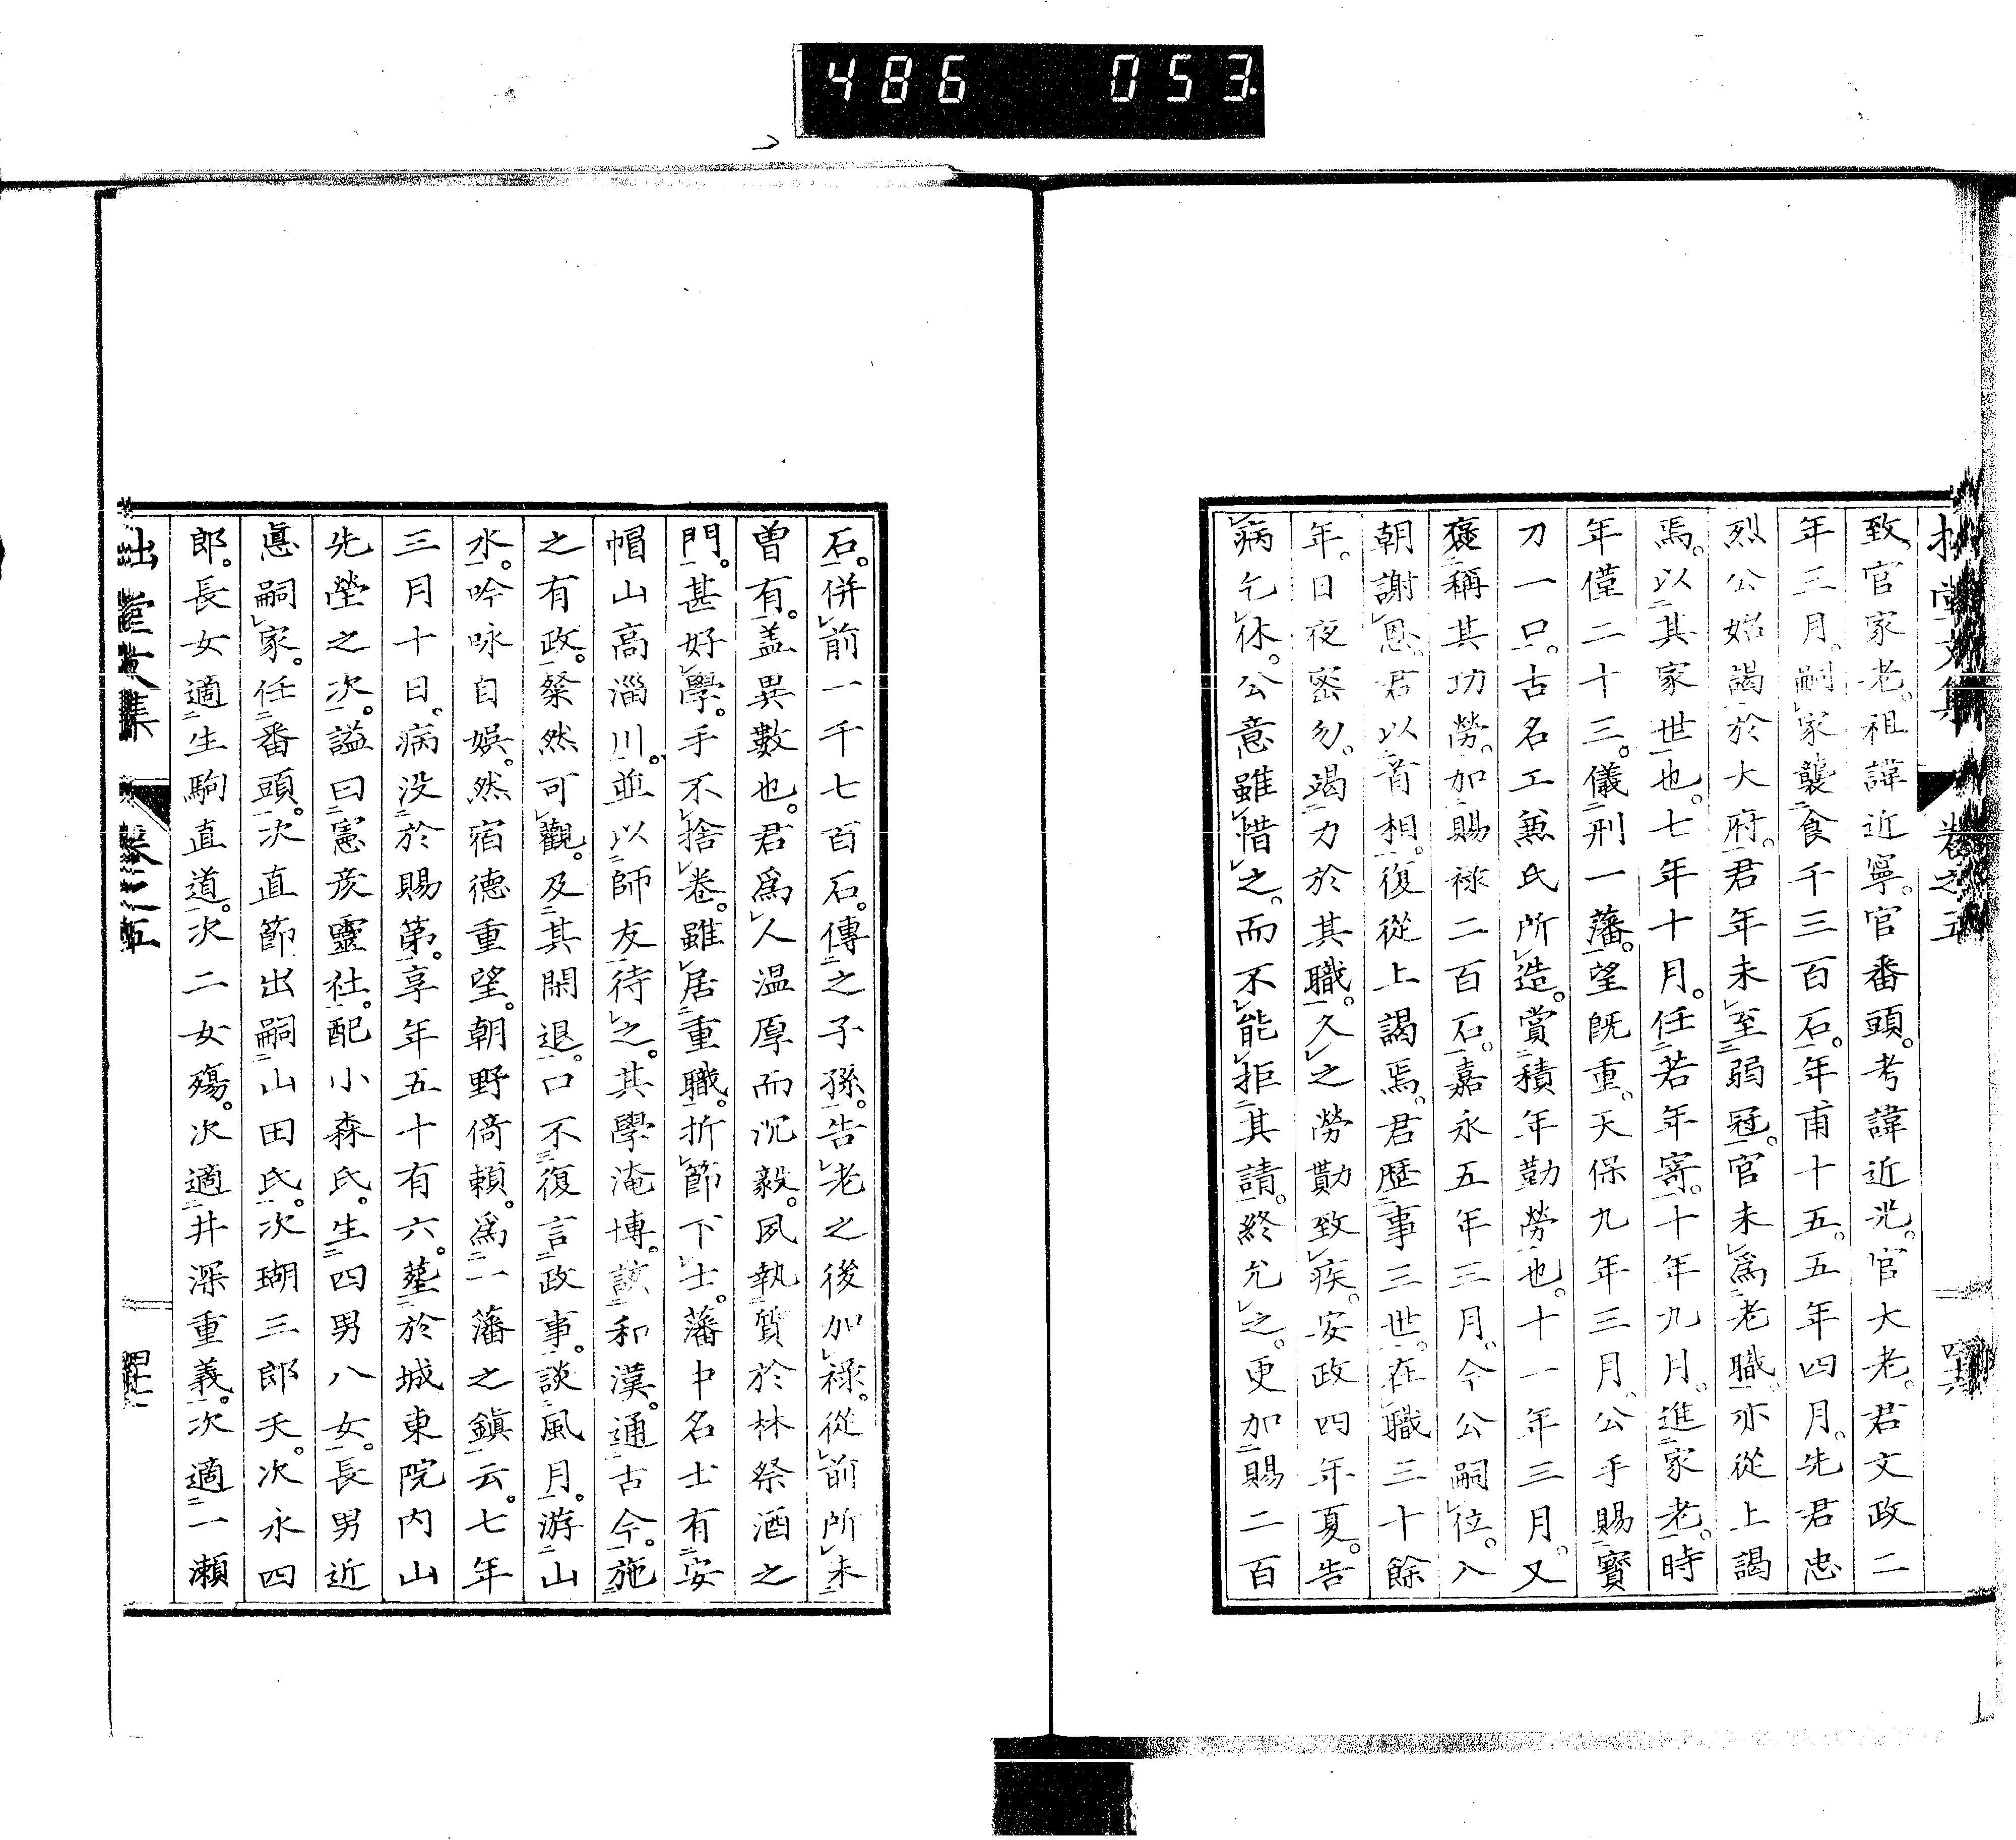 486 053
致官家老。祖諱近寧。官番頭。考諱近光。官大老。君文政二
年三月。嗣家襲食千三百石。年甫十五。五年四月。先君忠
烈公始謁於大府。君年未至弱冠。官未爲老職。亦從上謁
焉。以其家世也。七年十月。任若年寄。十年九月。進家老。時
年僅二十三。儀刑一藩。望既重。天保九年三月。公手賜寶
刀一口。古名工兼氏所造。賞積年勤勞也。十一年三月。又
褒稱其功勞。加賜祿二百石。嘉永五年三月。今公嗣位。入
朝謝恩。君以首相。復從上謁焉。君歷事三世。在職三十餘
年。日夜密勿。竭力於其職。久之勞勩致疾。安政四年夏。告
病乞休。公意雖惜之。而不能拒其請。終允之。更加賜二百
石。併前一千七百石。傳之子孫。告老之後加祿。從前所未
曽有。盖異數也。君爲人温厚而沉毅。夙執質於林祭酒之
門。甚好學。手不捨卷。雖居重職。折節下士。藩中名士有安
帽山高淄川。並以師友待之。其學淹博。該和漢。通古今。施
之有政。粲然可觀。及其閑退。口不復言政事。談風月。游山
水。吟咏自娯。然宿德重望。朝野倚賴。爲一藩之鎭云。七年
三月十日。病没於賜第。享年五十有六。塟於城東院内山
先塋之次。謚曰憲彦靈社。配小森氏。生四男八女。長男近
悳嗣家。任番頭。次直節出嗣山田氏。次瑚三郎夭。次永四
郎。長女適生駒直道。次二女殤。次適井深重義。次適一瀬
拙堂文集 卷之五